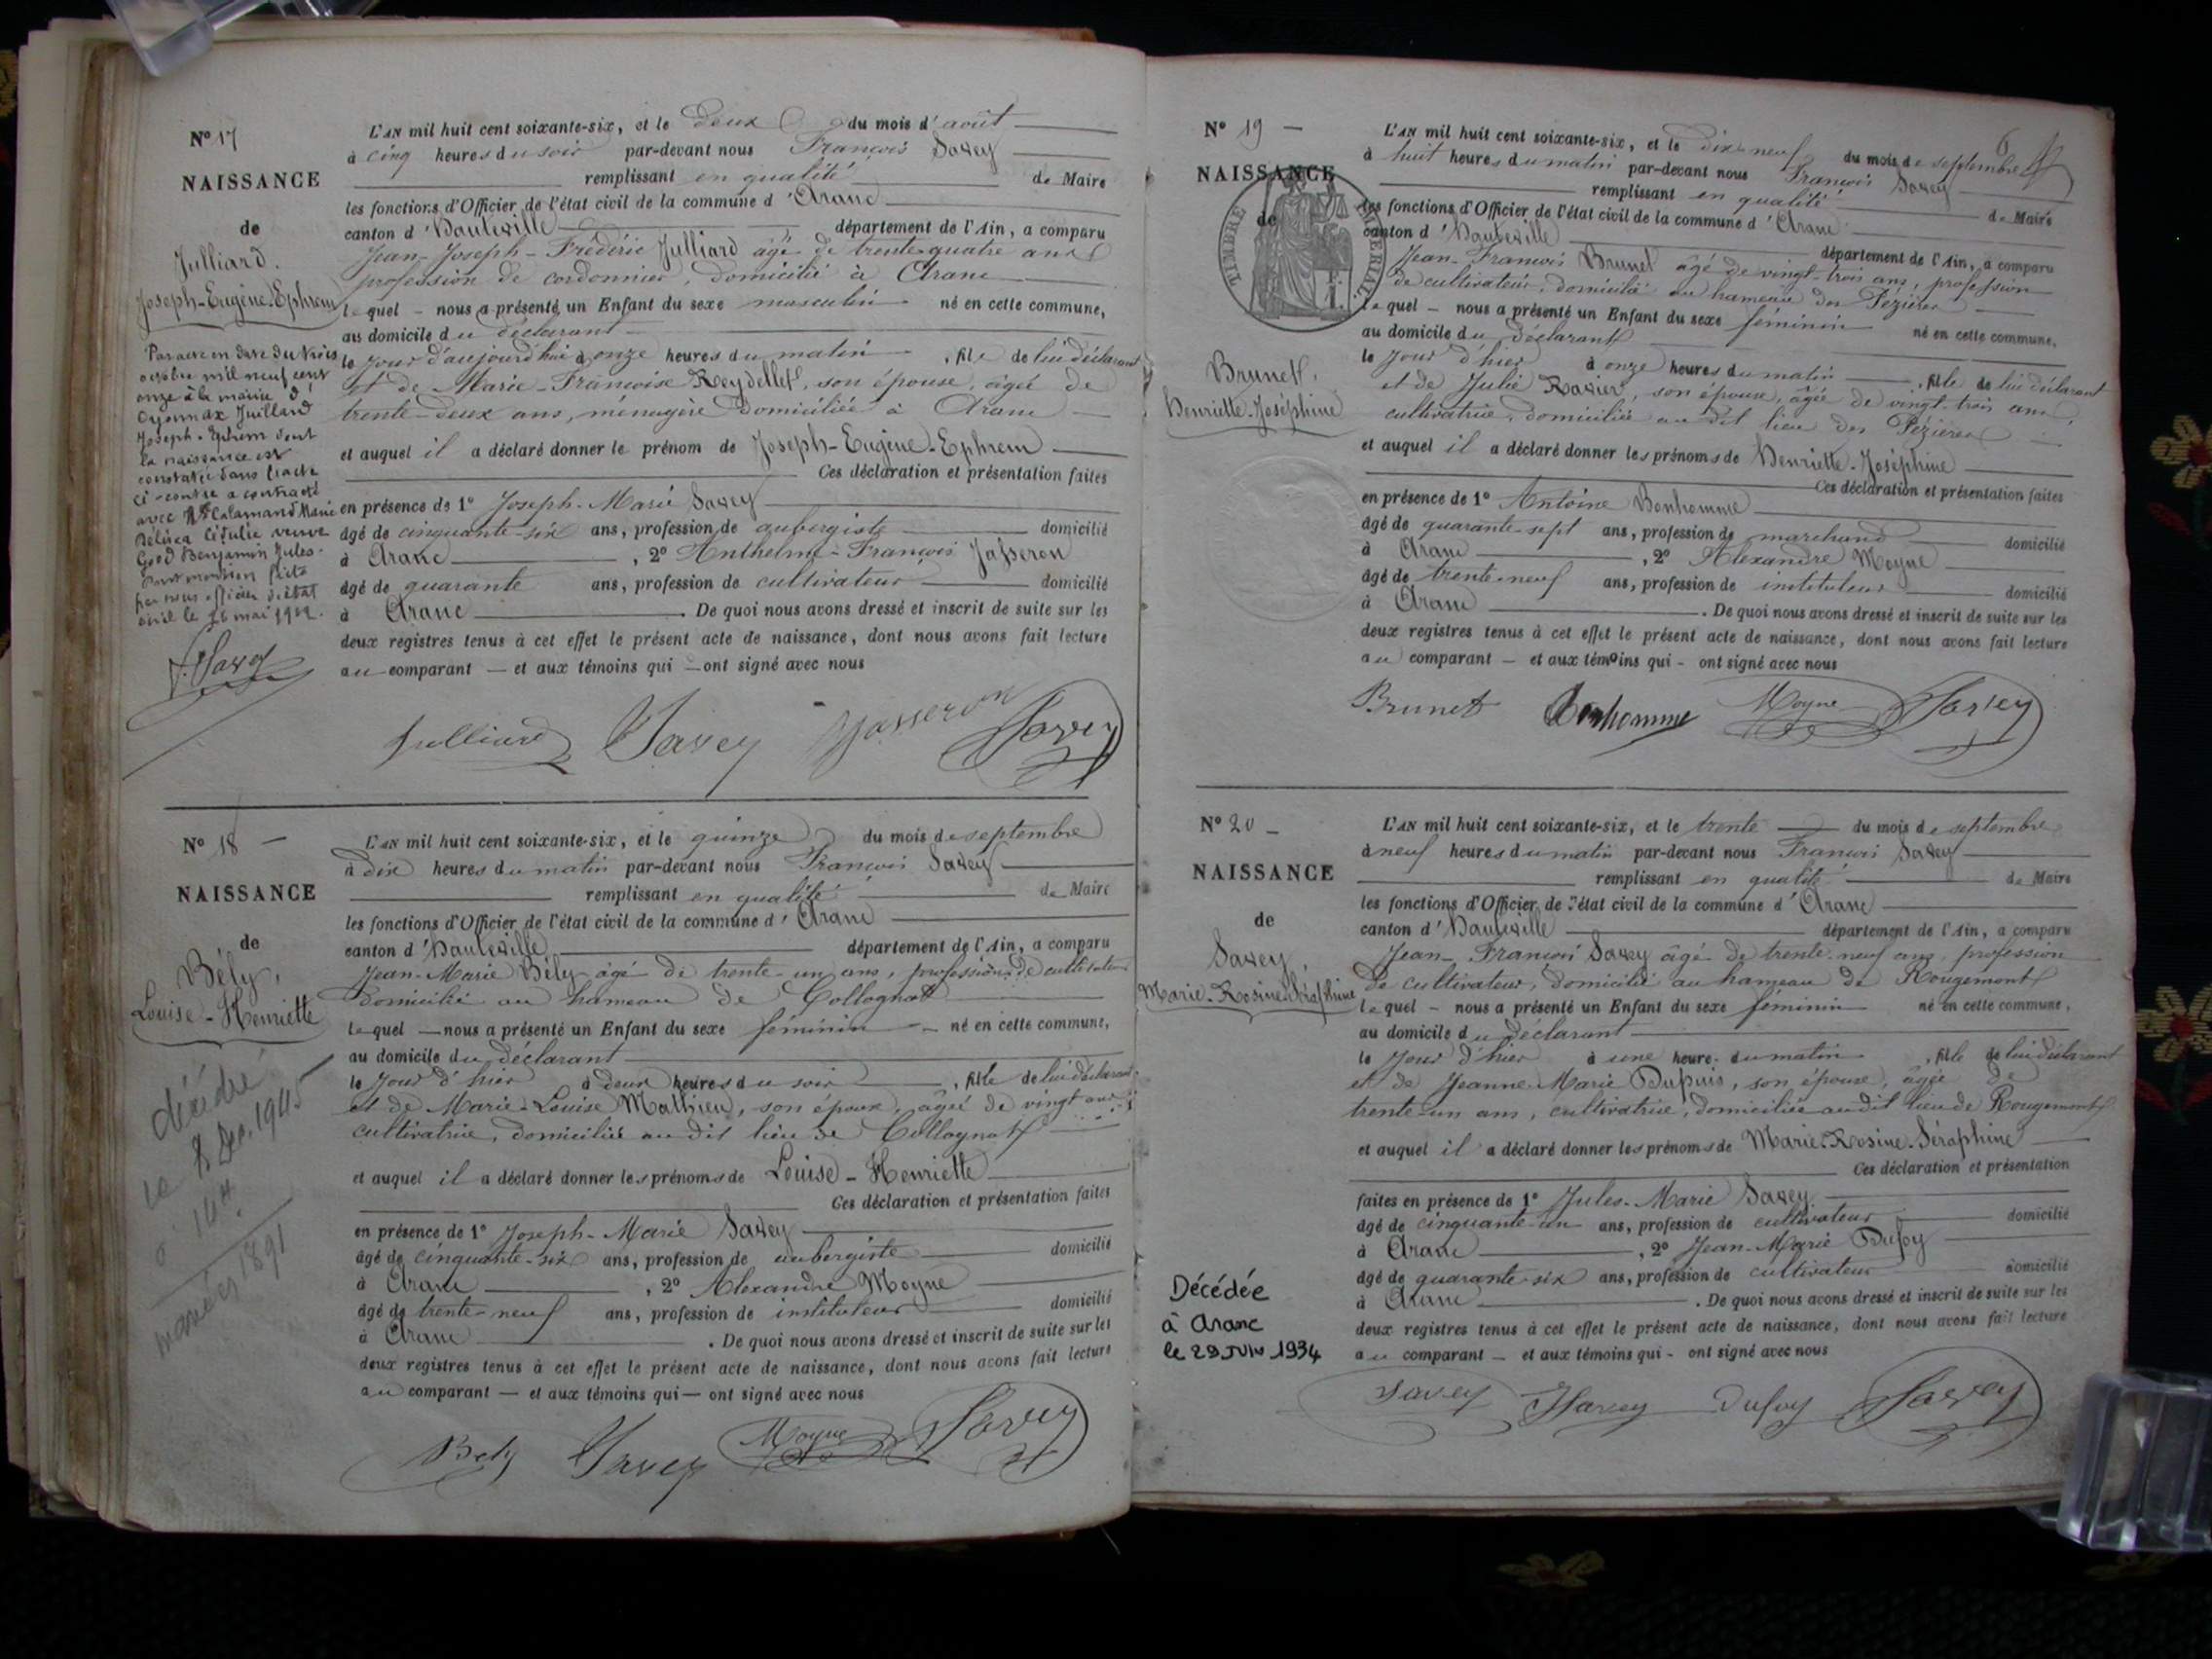 N° 17
NAISSANCE
de
Julliard.
Joseph-Eugène-Ephrem
Par acte en date du trois
octobre mil neuf cent
onze à la mairie d'
Oyonnax Juilland
Joseph-Ephrem dont
la naissance est
constatée dans l'acte
ci-contre a contracté
avec Calamand Marie
veuve
Benjamin Jules.
Dont mention faite
par nous officier d'état
civil le 26 mai 1912.
F. Savey
L'AN mil huit cent soixante-six, et le deux du mois d'août
à cinq heures du soir par-devant nous François Savey
remplissant en qualité de Maire
les fonctions d'Officier de l'état civil de la commune d'Aranc
canton d'Hauteville département de l'Ain, a comparu
Jean-Joseph-Frédéric Julliard âgé de trente-quatre ans
profession de cordonnier, domicilié à Aranc
lequel - nous a présenté un Enfant du sexe masculin né en cette commune,
au domicile du déclarant
le jour d'aujourd'hui à onze heures du matin, fils de lui déclarant
et de Marie-Françoise Reydellet, son épouse, âgée de
trente-deux ans, ménagère domiciliée à Aranc
et auquel il a déclaré donner le prénom de Joseph-Eugène-Ephrem
Ces déclaration et présentation faites
en présence de 1° Joseph-Marie Savey
âgé de cinquante-six ans, profession de aubergiste domicilié
à Aranc, 2° Anthelme-François Jasseron
âgé de quarante ans, profession de cultivateur domicilié
à Aranc. De quoi nous avons dressé et inscrit de suite sur les
deux registres tenus à cet effet le présent acte de naissance, dont nous avons fait lecture
au comparant — et aux témoins qui — ont signé avec nous
Julliard Savey Jasseron Savey
N° 18 —
NAISSANCE
de
Bély,
Louise-Henriette
décédée
le 8 Dec. 1945
à
mariée 1891
L'AN mil huit cent soixante-six, et le quinze du mois de septembre
à dix heures du matin par-devant nous François Savey
remplissant en qualité de Maire
les fonctions d'Officier de l'état civil de la commune d'Aranc
canton d'Hauteville département de l'Ain, a comparu
Jean-Marie Bély âgé de trente-un ans, profession de cultivateur
domicilié au hameau de Collognat
lequel — nous a présenté un Enfant du sexe féminin — né en cette commune,
au domicile du déclarant
le jour d'hier à deux heures du soir, fille de lui déclarant
et de Marie-Louise Mathieu, son épouse, âgée de vingt ans
cultivatrice, domiciliée au dit lieu de Collognat
et auquel il a déclaré donner les prénoms de Louise-Henriette
Ces déclaration et présentation faites
en présence de 1° Joseph-Marie Savey
âgé de cinquante-six ans, profession de aubergiste domicilié
à Aranc, 2° Alexandre Moyne
âgé de trente-neuf ans, profession de instituteur domicilié
à Aranc. De quoi nous avons dressé et inscrit de suite sur les
deux registres tenus à cet effet le présent acte de naissance, dont nous avons fait lecture
au comparant — et aux témoins qui — ont signé avec nous
Bely Savey Moyne Savey
6
N° 19 —
NAISSANCE
de
TIMBRE IMPÉRIAL
Brunet,
Henriette-Joséphine
L'AN mil huit cent soixante-six, et le dix-neuf du mois de septembre
à huit heures du matin par-devant nous François Savey
remplissant en qualité de Maire
les fonctions d'Officier de l'état civil de la commune d'Aranc
canton d'Hauteville département de l'Ain, a comparu
Jean-François Brunet âgé de vingt-trois ans, profession
de cultivateur, domicilié au hameau des Pézières
lequel — nous a présenté un Enfant du sexe féminin né en cette commune,
au domicile du déclarant
le jour d'hier à onze heures du matin, fille de lui déclarant
et de Julie Ravier, son épouse, âgée de vingt-trois ans
cultivatrice, domiciliée au dit lieu des Pézières
et auquel il a déclaré donner les prénoms de Henriette-Joséphine
Ces déclaration et présentation faites
en présence de 1° Antoine Bonhomme
âgé de quarante-sept ans, profession de marchand domicilié
à Aranc, 2° Alexandre Moyne
âgé de trente-neuf ans, profession de instituteur domicilié
à Aranc. De quoi nous avons dressé et inscrit de suite sur les
deux registres tenus à cet effet le présent acte de naissance, dont nous avons fait lecture
au comparant — et aux témoins qui - ont signé avec nous
Brunet Bonhomme Moyne Savey
N° 20 —
NAISSANCE
de
Savey,
Marie-Rosine-Séraphine
Décédée
à Aranc
le 29 JUIN 1934
L'AN mil huit cent soixante-six, et le trente du mois de septembre
à neuf heures du matin par-devant nous François Savey
remplissant en qualité de Maire
les fonctions d'Officier de l'état civil de la commune d'Aranc
canton d'Hauteville département de l'Ain, a comparu
Jean-François Savey âgé de trente-neuf ans, profession
de cultivateur, domicilié au hameau de Rougemont
lequel — nous a présenté un Enfant du sexe féminin né en cette commune,
au domicile du déclarant
le jour d'hier à une heure du matin, fille de lui déclarant
et de Jeanne-Marie Dupuis, son épouse, âgée de
trente-un ans, cultivatrice, domiciliée audit lieu de Rougemont
et auquel il a déclaré donner les prénoms de Marie-Rosine-Séraphine
Ces déclaration et présentation
faites en présence de 1° Jules-Marie Savey
âgé de cinquante-un ans, profession de cultivateur domicilié
à Aranc, 2° Jean-Marie Dufoy
âgé de quarante-six ans, profession de cultivateur domicilié
à Aranc. De quoi nous avons dressé et inscrit de suite sur les
deux registres tenus à cet effet le présent acte de naissance, dont nous avons fait lecture
au comparant — et aux témoins qui - ont signé avec nous
Savey Savey Dufoy Savey